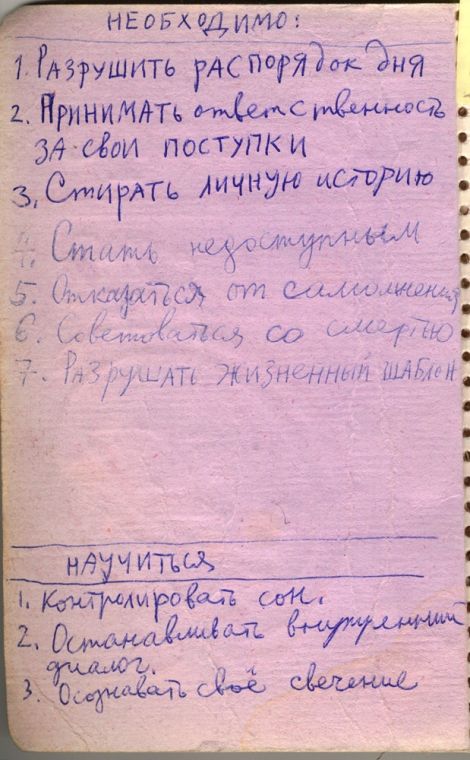 НЕОБХОДИМО:
1. РАЗРУШИТЬ РАСПОРЯДОК ДНЯ
2. ПРИНИМАТЬ ответственность
ЗА СВОИ ПОСТУПКИ
3. Стирать личную историю
4. Стать недоступным
5. Отказаться от самомнения
6. Советоваться со смертью
7. РАЗРУШАТЬ ЖИЗНЕННЫЙ ШАБЛОН
НАУЧИТЬСЯ
1. Контролировать сон.
2. Останавливать внутренний
диалог.
3. Осознавать своё свечение